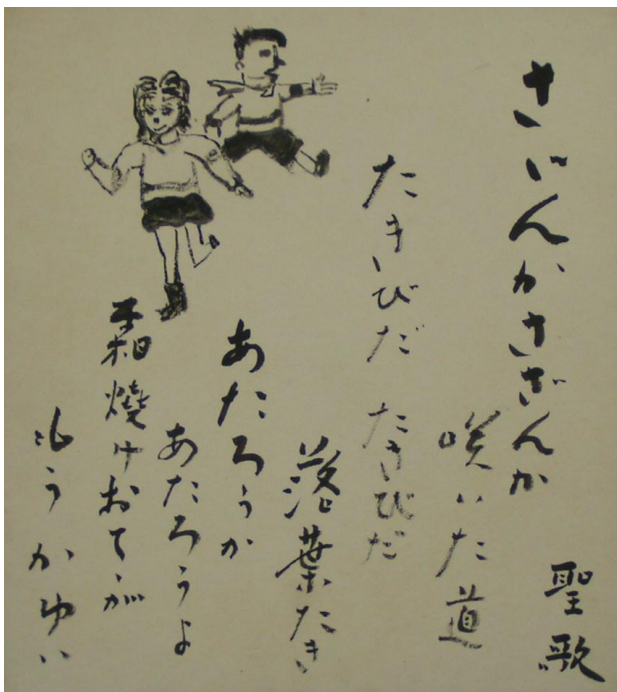 さゞんかさざんか
咲いた道
たきびだ たきびだ
落葉たき
あたろうか
あたろうよ
霜燒けおてゝが
もうかゆい
聖歌